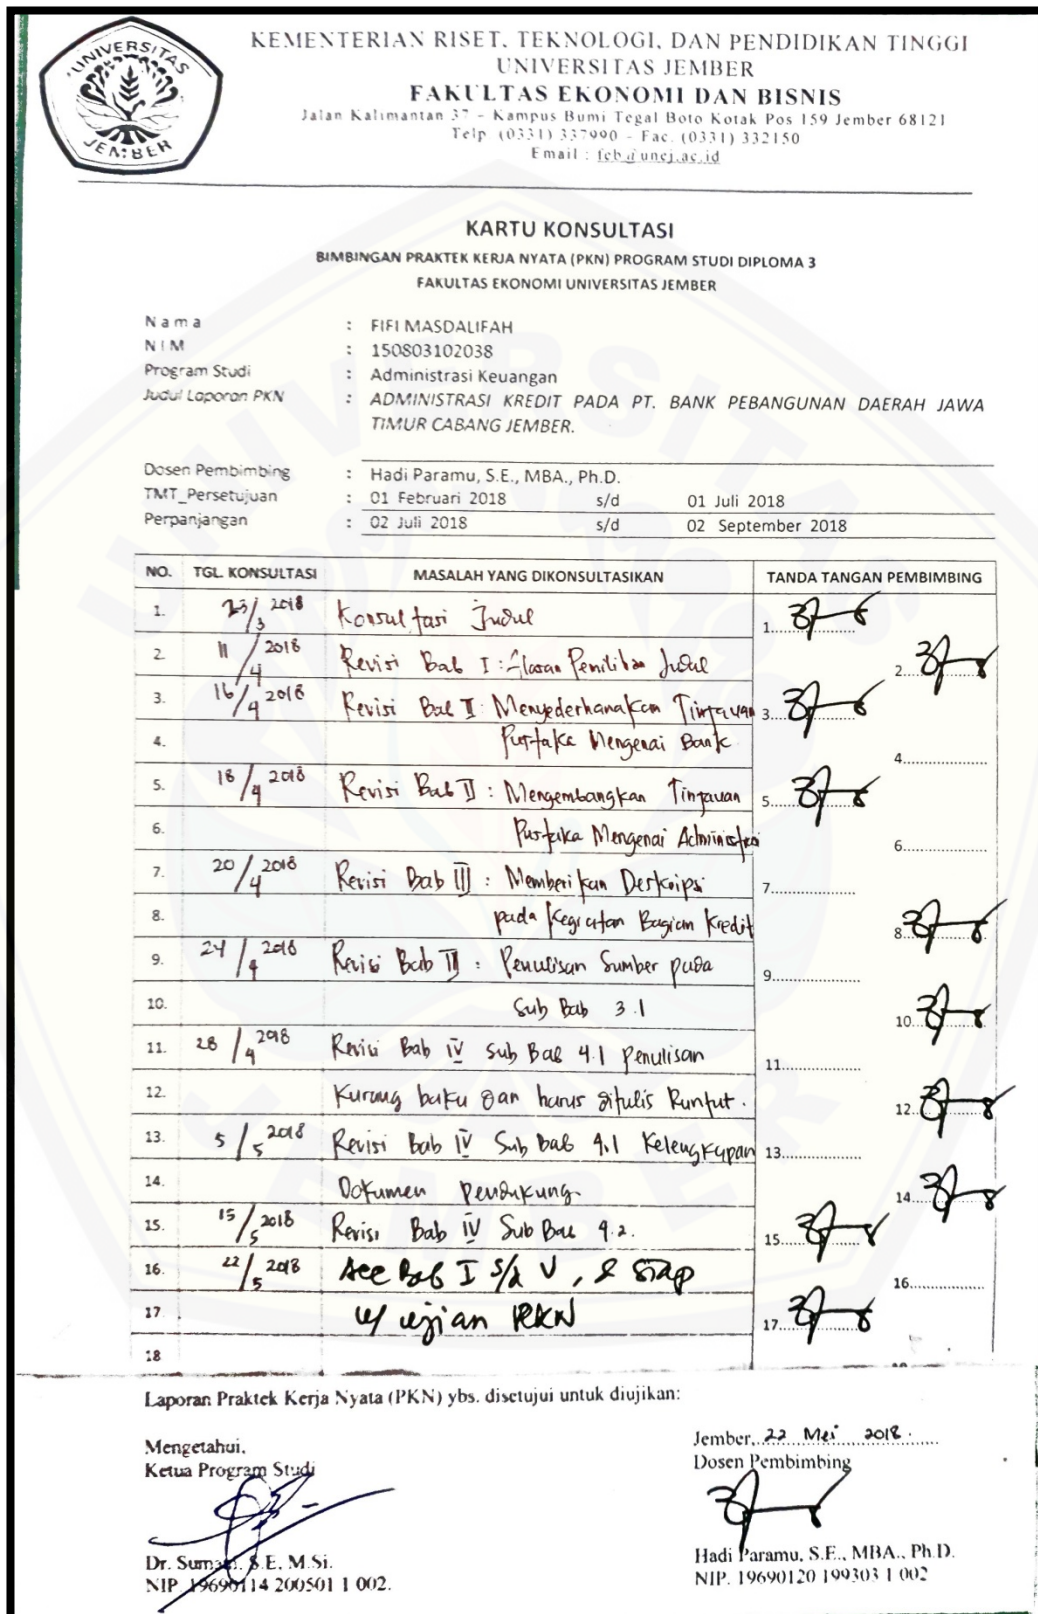 UNIVERSITAS
JEMBER
KEMENTERIAN RISET, TEKNOLOGI, DAN PENDIDIKAN TINGGI
UNIVERSITAS JEMBER
FAKULTAS EKONOMI DAN BISNIS
Jalan Kalimantan 37 - Kampus Bumi Tegal Boto Kotak Pos 159 Jember 68121
Telp. (0331) 337990 - Fac. (0331) 332150
Email : feb@unej.ac.id
KARTU KONSULTASI
BIMBINGAN PRAKTEK KERJA NYATA (PKN) PROGRAM STUDI DIPLOMA 3
FAKULTAS EKONOMI UNIVERSITAS JEMBER
Nama : FIFI MASDALIFAH
NIM : 150803102038
Program Studi : Administrasi Keuangan
Judul Laporan PKN : ADMINISTRASI KREDIT PADA PT. BANK PEBANGUNAN DAERAH JAWA
TIMUR CABANG JEMBER.
Dosen Pembimbing : Hadi Paramu, S.E., MBA., Ph.D.
TMT_Persetujuan : 01 Februari 2018 s/d 01 Juli 2018
Perpanjangan : 02 Juli 2018 s/d 02 September 2018
NO. TGL. KONSULTASI MASALAH YANG DIKONSULTASIKAN TANDA TANGAN PEMBIMBING
1. 23/3 2018 Konsultasi Judul 1.
2. 11/4 2018 Revisi Bab I : Alasan Pemilihan Judul 2.
3. 16/4 2018 Revisi Bab II : Menyederhanakan Tinjauan 3.
4. Pustaka Mengenai Bank 4.
5. 18/4 2018 Revisi Bab II : Mengembangkan Tinjauan 5.
6. Pustaka Mengenai Administrasi 6.
7. 20/4 2018 Revisi Bab III : Memberikan Deskripsi 7.
8. pada Kegiatan Bagian Kredit 8.
9. 24/4 2018 Revisi Bab III : Penulisan Sumber pada 9.
10. Sub Bab 3.1 10.
11. 28/4 2018 Revisi Bab IV Sub Bab 4.1 Penulisan 11.
12. Kurang baku dan harus ditulis Runtut. 12.
13. 5/5 2018 Revisi Bab IV Sub Bab 4.1 Kelengkapan 13.
14. Dokumen Pendukung. 14.
15. 15/5 2018 Revisi Bab IV Sub Bab 4.2. 15.
16. 22/5 2018 Acc Bab I s/d V, & siap 16.
17. u/ ujian PKN 17.
18
Laporan Praktek Kerja Nyata (PKN) ybs. disetujui untuk diujikan:
Jember, 22 Mei 2018.
Mengetahui, Dosen Pembimbing
Ketua Program Studi
Dr. S.E, M.Si. Hadi Paramu, S.E., MBA., Ph.D.
NIP. 19690114 200501 1 002. NIP. 19690120 199303 1 002